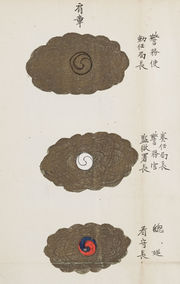 肩章
警務使
勅任局長
奏任局長
警務官
監獄署長
總巡
看守長